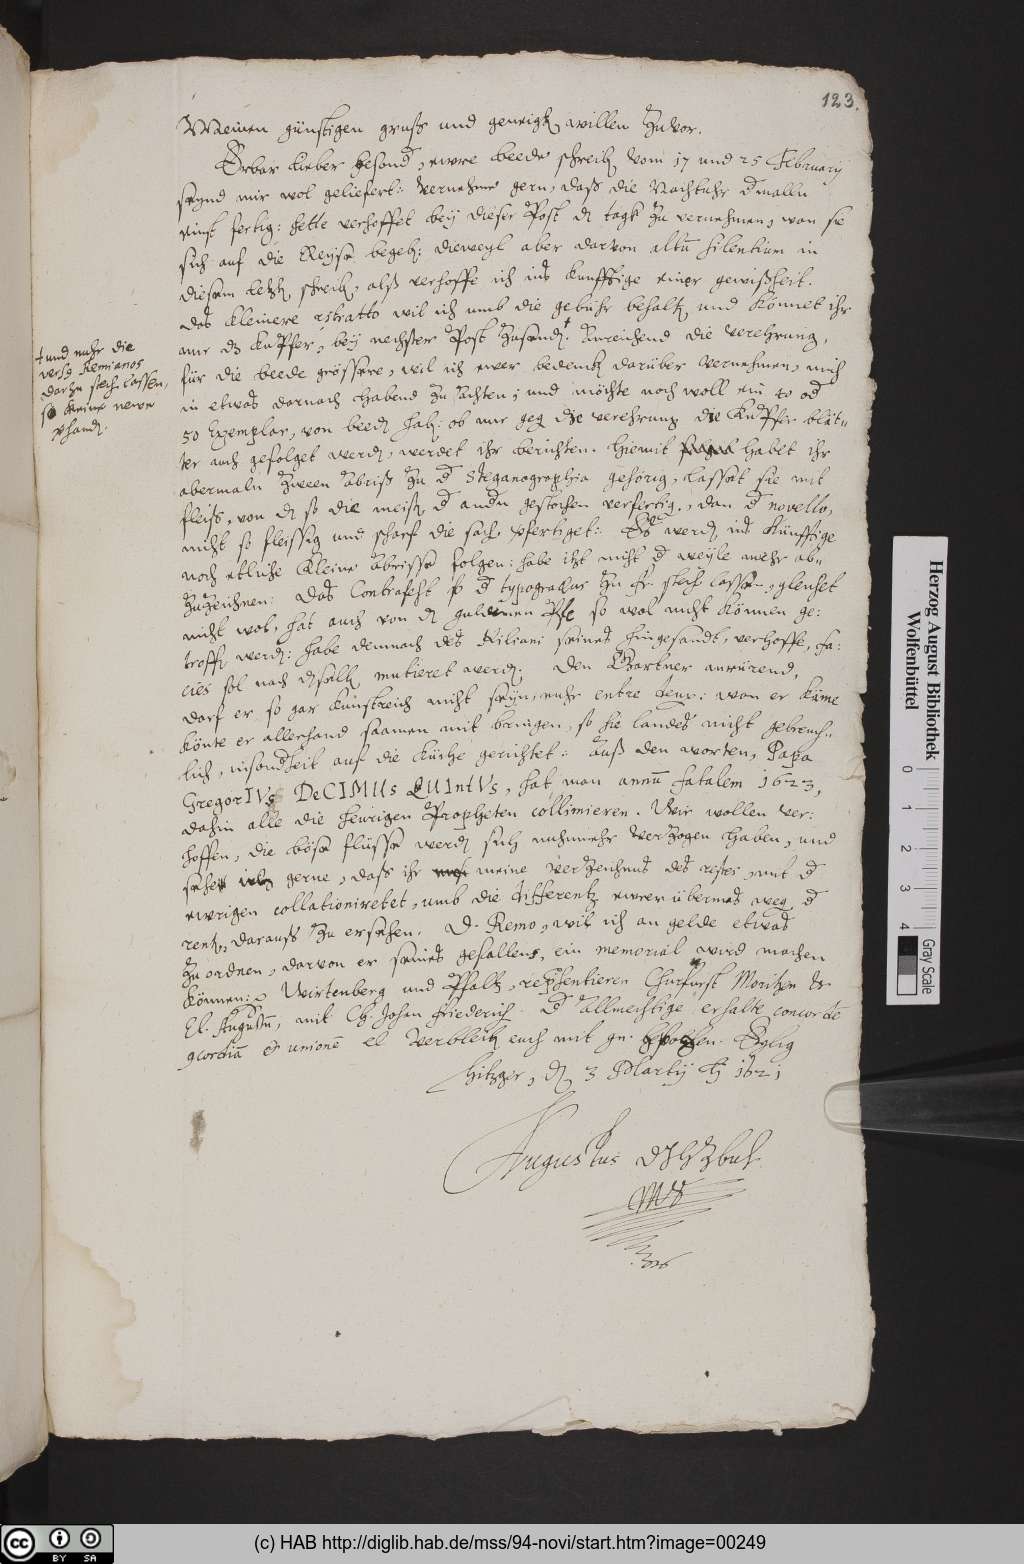 123.
Meinen günstigen gruß und geneigtē willen zuvor.
Erbar lieber besondr, ewre beede schreibē vom 17 und 25 Februarij
seynd mir wol geliefert: vernehme gern, daß die Nachfuhr dmalln
einst fertig: hette verhoffet bey dieser Post dē tagk zu vernehmen, wan sie
sich auf die Reyse begebē: dieweyl aber darvon altū silentium in
diesem letztē schreibē, alß verhoffe ich ins kunfftige einer gewißheit.
das kleinere ritratto wil ich umb die gebühr behaltē, und könnet ihr
mir dz kupfer, bey nechster Post zusendē.† Anreichend die verehrung,
für die beede grössere, wil ich ewer bedenckē darüber vernehmen, mich
in etwas darnach habend zu achten; und möchte noch woll ein 40 od
50 Exemplar, von beedē habē: ob mir gegē die verehrung die Kupfer blät=
ter auch gefolget werdē, werdet ihr berichten. Hiemit habet ihr
abermaln zween abriß zu d Steganographia gehörig, lasset sie mit
fleiß, von dē so die meistē d andn gestochen verfertigē, dan d novello,
nicht so fleissig und scharf die sachē verfertiget: Es werdē ins künfftige
noch etliche kleine abrisse folgen: habe itzt nicht d weyle mehr ab=
zuzeichnen: Das Contrafeht so d typograffus zu Fr. stech lassen, gleichet
nicht wol, hat auch von dē guldinen Pfe so wol nicht können ge:
troffē werdē: habe demnach des Kiliani seines hingesandt, verhoffe, fa:
cies sol nach dselbē mutieret werdē. Den Gartner anrürend,
darf er so gar kunstreich nicht seyn, nuhr entre deux: wan er käme
könte er allerhand saamen mit bringen, so hie landes nicht gebreuch=
lich, insondheit auf die küche gerichtet: Auß den worten, Papa
GregorIVs DeCIMUs QUIntVs, hat man annū fatalem 1623,
dahin alle die heurigen Propheten collimieren. Wir wollen ver:
hoffen, die böse flüsse werdē sich nuhnmehr verzogen haben, und
sehe gerne, daß ihr meine verzeichnus des restes, mit d
ewrigen collationiretet, umb die differentz ewrer übermas wegē d
rentē, darauß zu ersehen. D. Remo, wil ich an gelde etwas
zu ordnen, darvon er seines gefallens, ein memorial wird machen
können: Wirtenberg und Pfaltz, repsentieren Churfürst Moritzen &
El. Augustū, mit Ch. Johan Friederich. D Allmechtige erhalte concordē
cordiā & unionē el verbleibē euch mit gn. Eylig
Hitzger, dē 3 Martij Aō 1621
Augustus DJHZBuL
mp
† und nuhr die
verse Remianos
darzu stech lassen,
so keine newe
vhandē.
Herzog August Bibliothek
Wolfenbüttel
0 1 2 3 4
Gray Scale
cc BY SA
(c) HAB http://diglib.hab.de/mss/94-novi/start.htm?image=00249